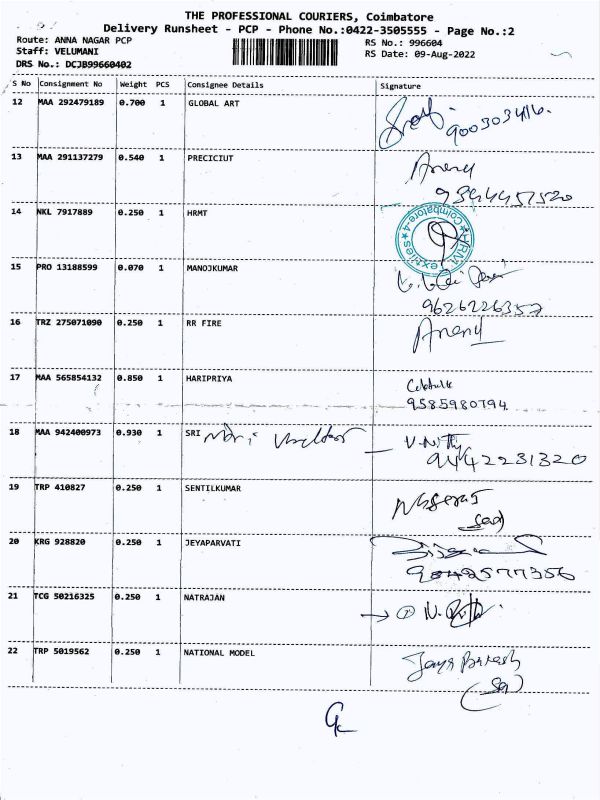 THE PROFESSIONAL COURIERS, Coimbatore
Delivery Runsheet - PCP - Phone No.:0422-3505555 - Page No.:2
Route: ANNA NAGAR PCP
RS No.: 996604
Staff: VELUMANI
RS Date: 09-Aug-2022
DRS No.: DCJB99660402
S No Consignment No Weight PCS Consignee Details Signature
12 MAA 292479189 0.700 1 GLOBAL ART
13 MAA 291137279 0.540 1 PRECICIUT Anend
14 NKL 7917889 0.250 1 HRMT
15 PRO 13188599 0.070 1 MANOJKUMAR
9626226357
16 TRZ 275071090 0.250 1 RR FIRE Anend
17 MAA 565854132 0.850 1 HARIPRIYA
9585980794
18 MAA 942400973 0.930 1 SRI V.Nithy
9442231320
19 TRP 410827 0.250 1 SENTILKUMAR
20 KRG 928820 0.250 1 JEYAPARVATI
21 TCG 50216325 0.250 1 NATRAJAN
22 TRP 5019562 0.250 1 NATIONAL MODEL